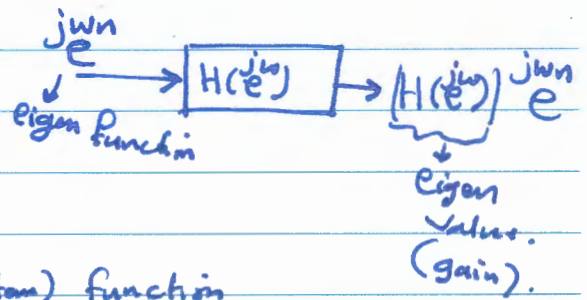 e^{jwn} → H(e^{jw}) → (H(e^{jw})) e^{jwn}
eigen functin
eigen
value.
(gain).
function